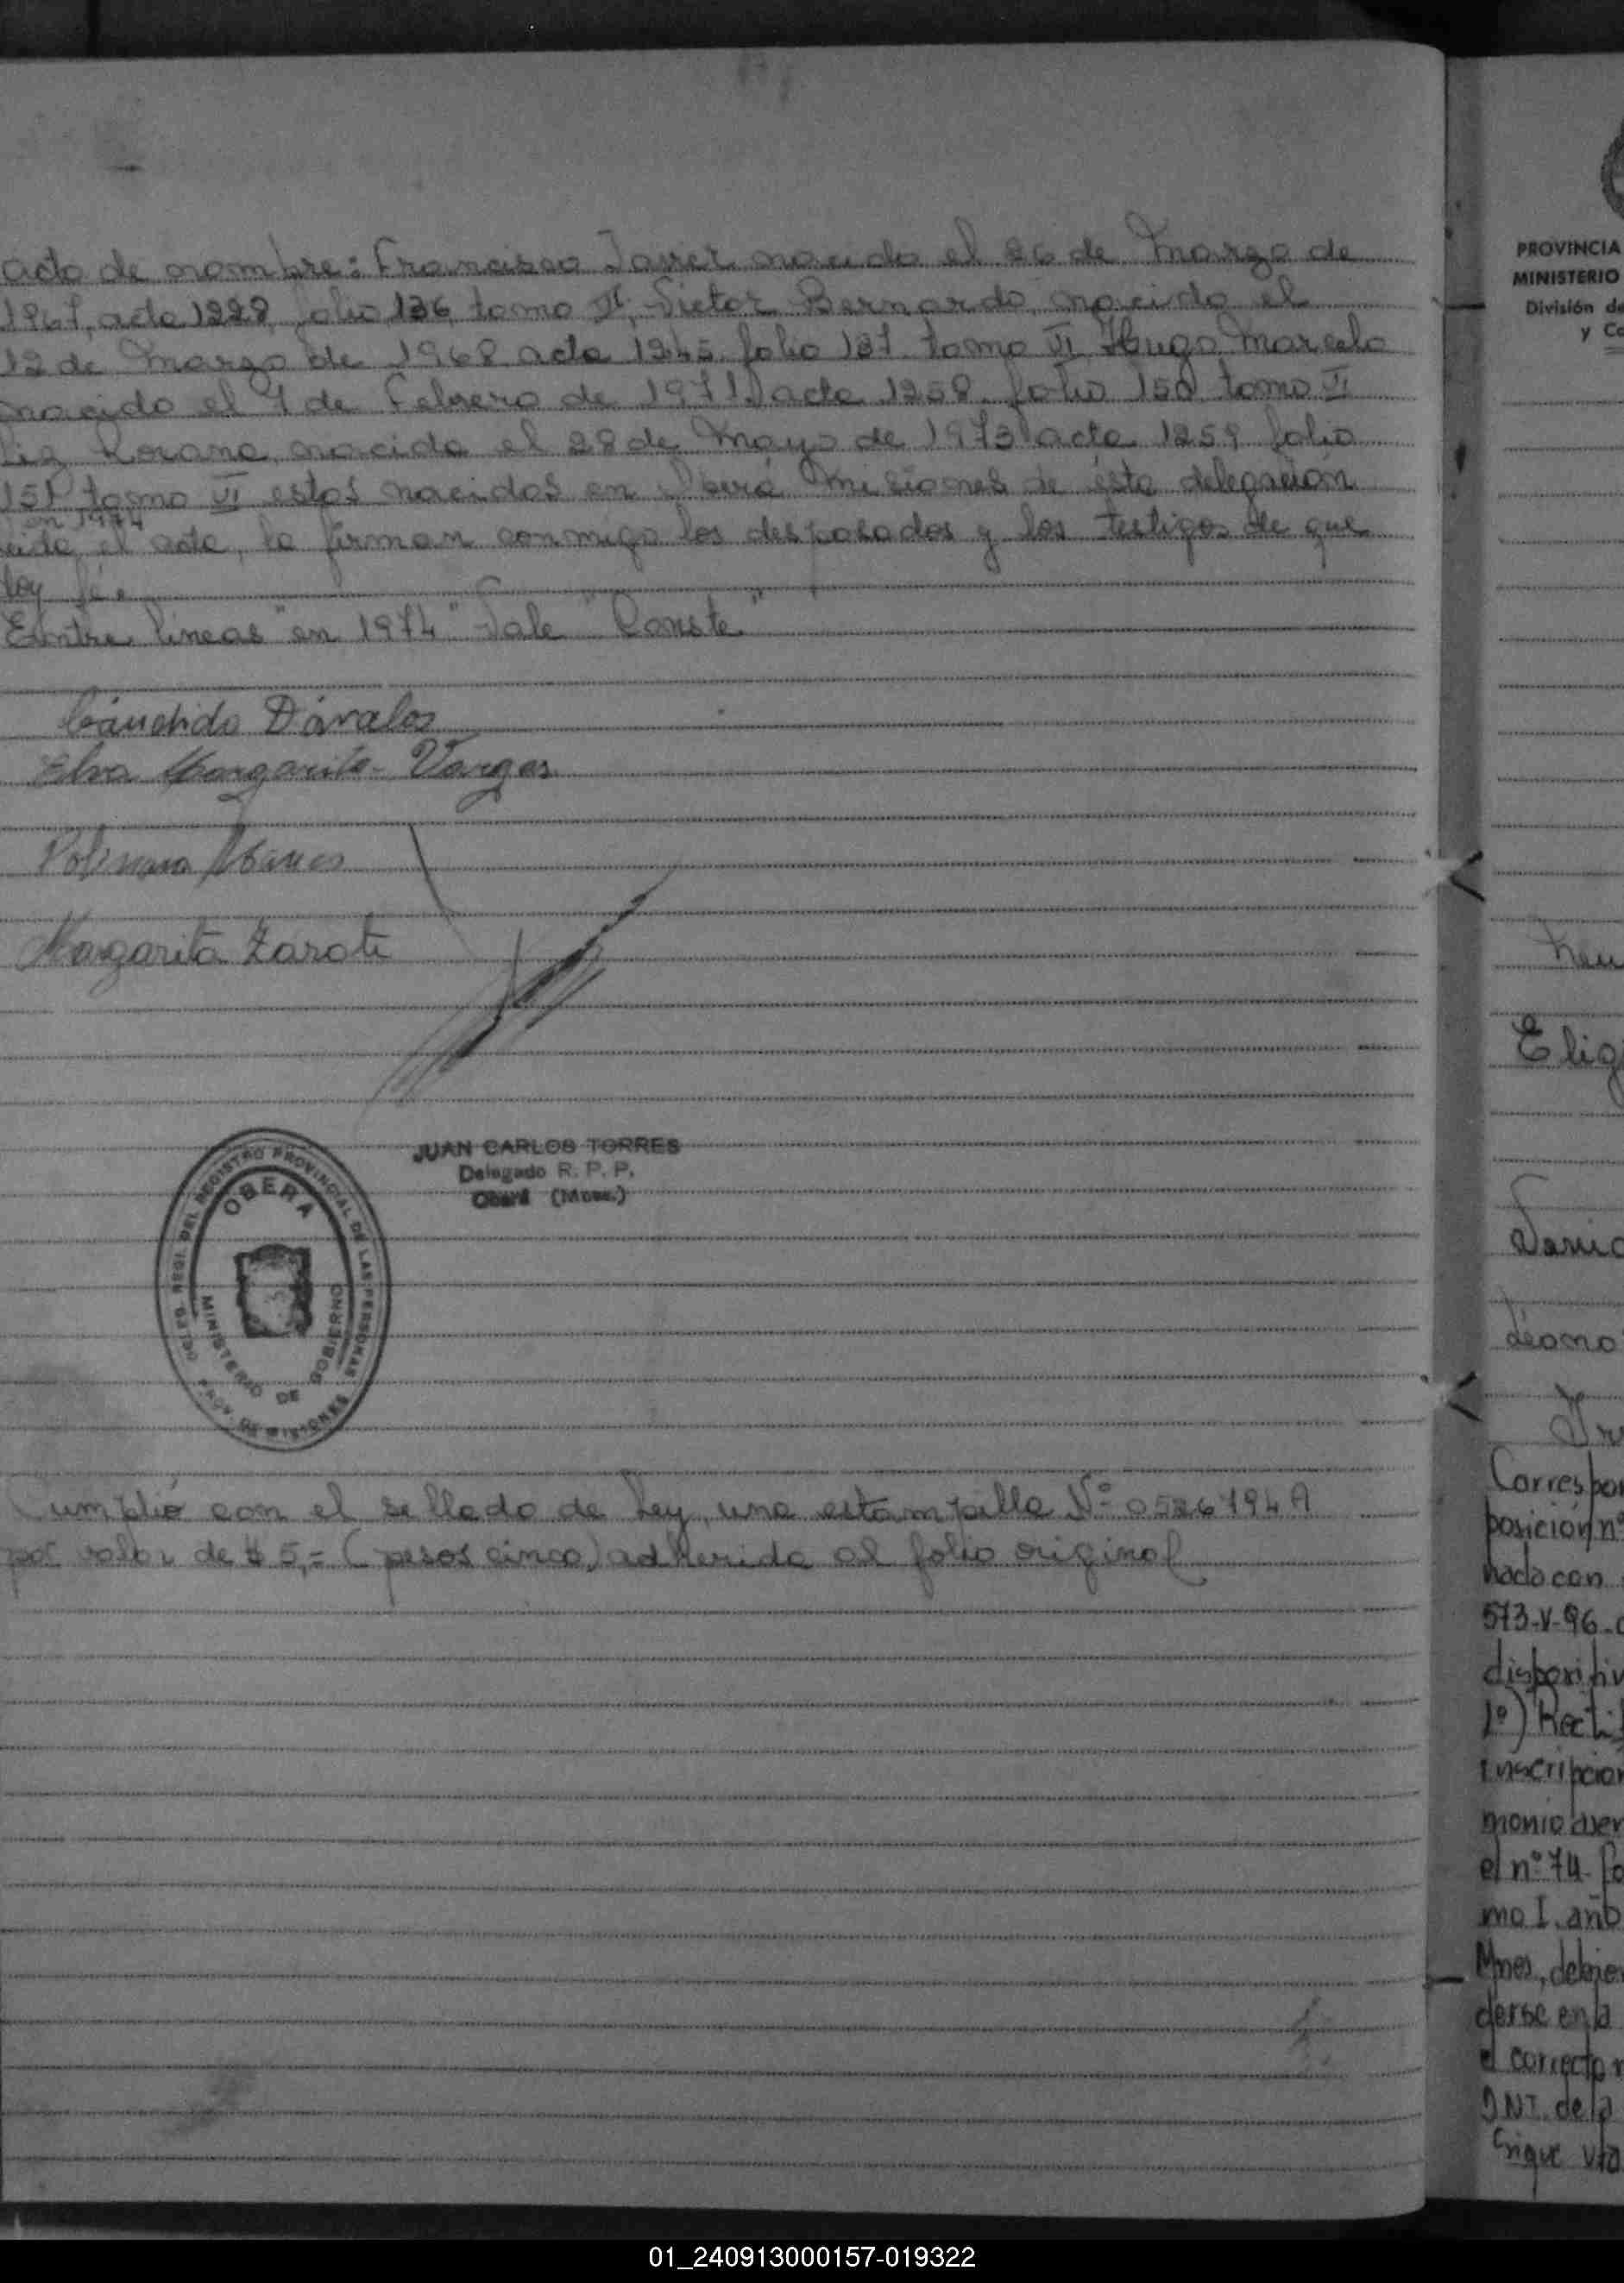 acto de nombre: Francisco Javier nacido el 26 de Marzo de
1967, acta 1228, folio 136 tomo VI, Victor Bernardo, nacido el
12 de Marzo de 1968 acta 1245 folio 137 tomo VI Hugo Marcelo
nacido el 9 de Febrero de 1971 acta 1258 folio 150 tomo VI
Liz Rosana nacida el 28 de Mayo de 1973 acta 1259 folio
151 tomo VI estos nacidos en Oberá Misiones de ésta delegación
en 1974
leida el acta, la firman conmigo los desposados y los testigos de que
doy fé.
Entre líneas "en 1974" Vale "Conste"
Cándido Dávalos
Elva Margarita Vargas
Margarita Zarate
JUAN CARLOS TORRES
Delegado R. P. P.
Oberá (Mnes.)
DEL REGISTRO PROVINCIAL DE LAS PERSONAS
OBERA
MINISTERIO DE GOBIERNO
PROV. DE MISIONES
Cumplió con el sellado de Ley, una estampilla Nº 0526794A
por valor de $ 5,= (pesos cinco) adherida al folio original
PROVINCIA
MINISTERIO
División de
y
Elig
Correspon
posición nº
nado con
573-V-96
dispositiv
1º) Recti
inscripcion
monio
el nº 74 fo
mo I. año
Mnes, debien
derse en la
el correcto
DNI. de la
01_240913000157-019322